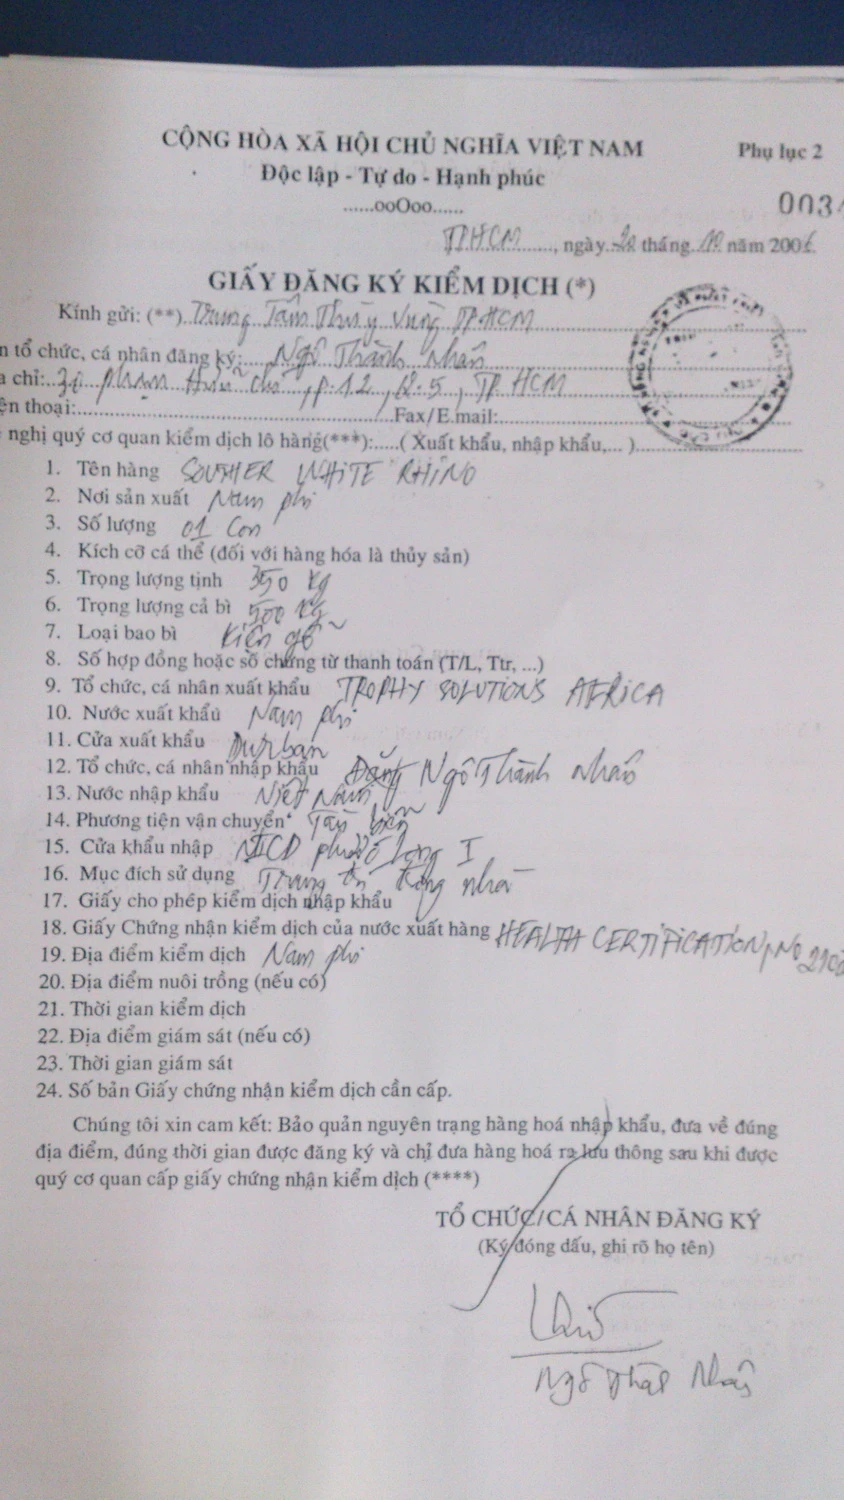 CỘNG HÒA XÃ HỘI CHỦ NGHĨA VIỆT NAM Phụ lục 2
Độc lập - Tự do - Hạnh phúc
......ooOoo......
003
TP.HCM......, ngày 20 tháng 10 năm 2006
GIẤY ĐĂNG KÝ KIỂM DỊCH (*)
Kính gửi: (**) Trung Tâm Thú y Vùng TP.HCM
n tổ chức, cá nhân đăng ký: Ngô Thành Nhân
a chỉ: 30 Phạm Hữu Chí, P.12, Q.5, TP HCM
ện thoại:.......Fax/E.mail:.......
nghị quý cơ quan kiểm dịch lô hàng(***):.....( Xuất khẩu, nhập khẩu,... ).......
1. Tên hàng SOUTHER WHITE RHINO
2. Nơi sản xuất Nam phi
3. Số lượng 01 Con
4. Kích cỡ cá thể (đối với hàng hóa là thủy sản)
5. Trọng lượng tịnh 350 kg
6. Trọng lượng cả bì 500 kg
7. Loại bao bì Kiện gỗ
8. Số hợp đồng hoặc số chứng từ thanh toán (T/L, Ttr, ...)
9. Tổ chức, cá nhân xuất khẩu TROPHY SOLUTIONS AFRICA
10. Nước xuất khẩu Nam phi
11. Cửa xuất khẩu Durban
12. Tổ chức, cá nhân nhập khẩu Ngô Thành Nhân
13. Nước nhập khẩu Việt Nam
14. Phương tiện vận chuyển Tàu biển
15. Cửa khẩu nhập ICD phước long I
16. Mục đích sử dụng Trang trí trong nhà
17. Giấy cho phép kiểm dịch nhập khẩu
18. Giấy Chứng nhận kiểm dịch của nước xuất hàng HEALTH CERTIFICATION, NO
19. Địa điểm kiểm dịch Nam phi
20. Địa điểm nuôi trồng (nếu có)
21. Thời gian kiểm dịch
22. Địa điểm giám sát (nếu có)
23. Thời gian giám sát
24. Số bản Giấy chứng nhận kiểm dịch cần cấp.
Chúng tôi xin cam kết: Bảo quản nguyên trạng hàng hoá nhập khẩu, đưa về đúng
địa điểm, đúng thời gian được đăng ký và chỉ đưa hàng hoá ra lưu thông sau khi được
quý cơ quan cấp giấy chứng nhận kiểm dịch (****)
TỔ CHỨC/CÁ NHÂN ĐĂNG KÝ
(Ký đóng dấu, ghi rõ họ tên)
Ngô Thành Nhân